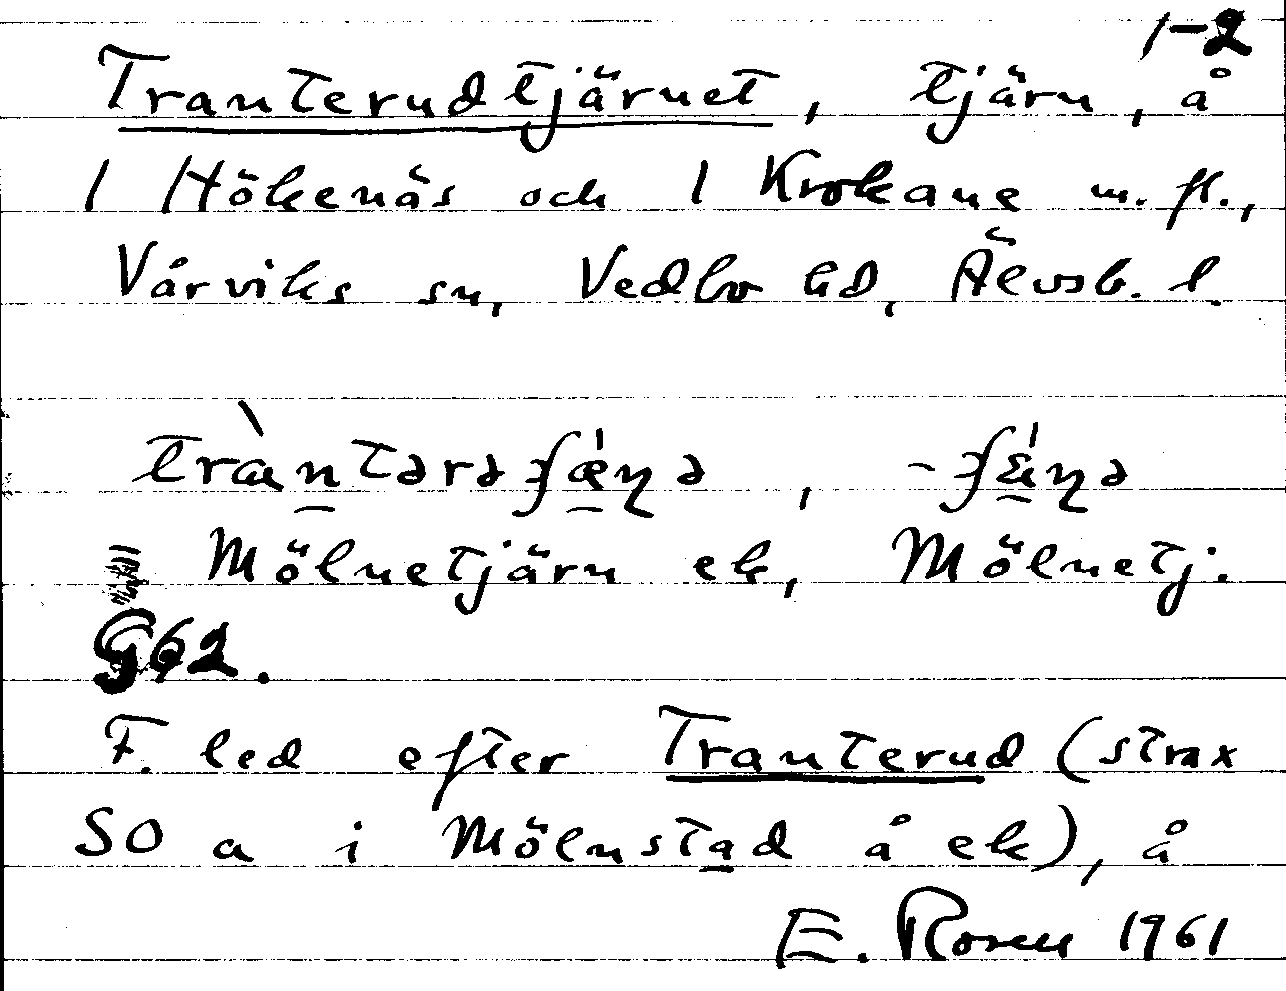 1-2
Tranterudtjärnet, tjärn, å
1 Hökenäs och 1 Krokane m.fl.,
Vårviks sn, Vedbo hd, Älvsb. l.
Mölnetjärn ek, Mölnetj.
G62.
F. led efter Tranterud (strax
SO a i Mölnstad å ek), å
E. Rosen 1961